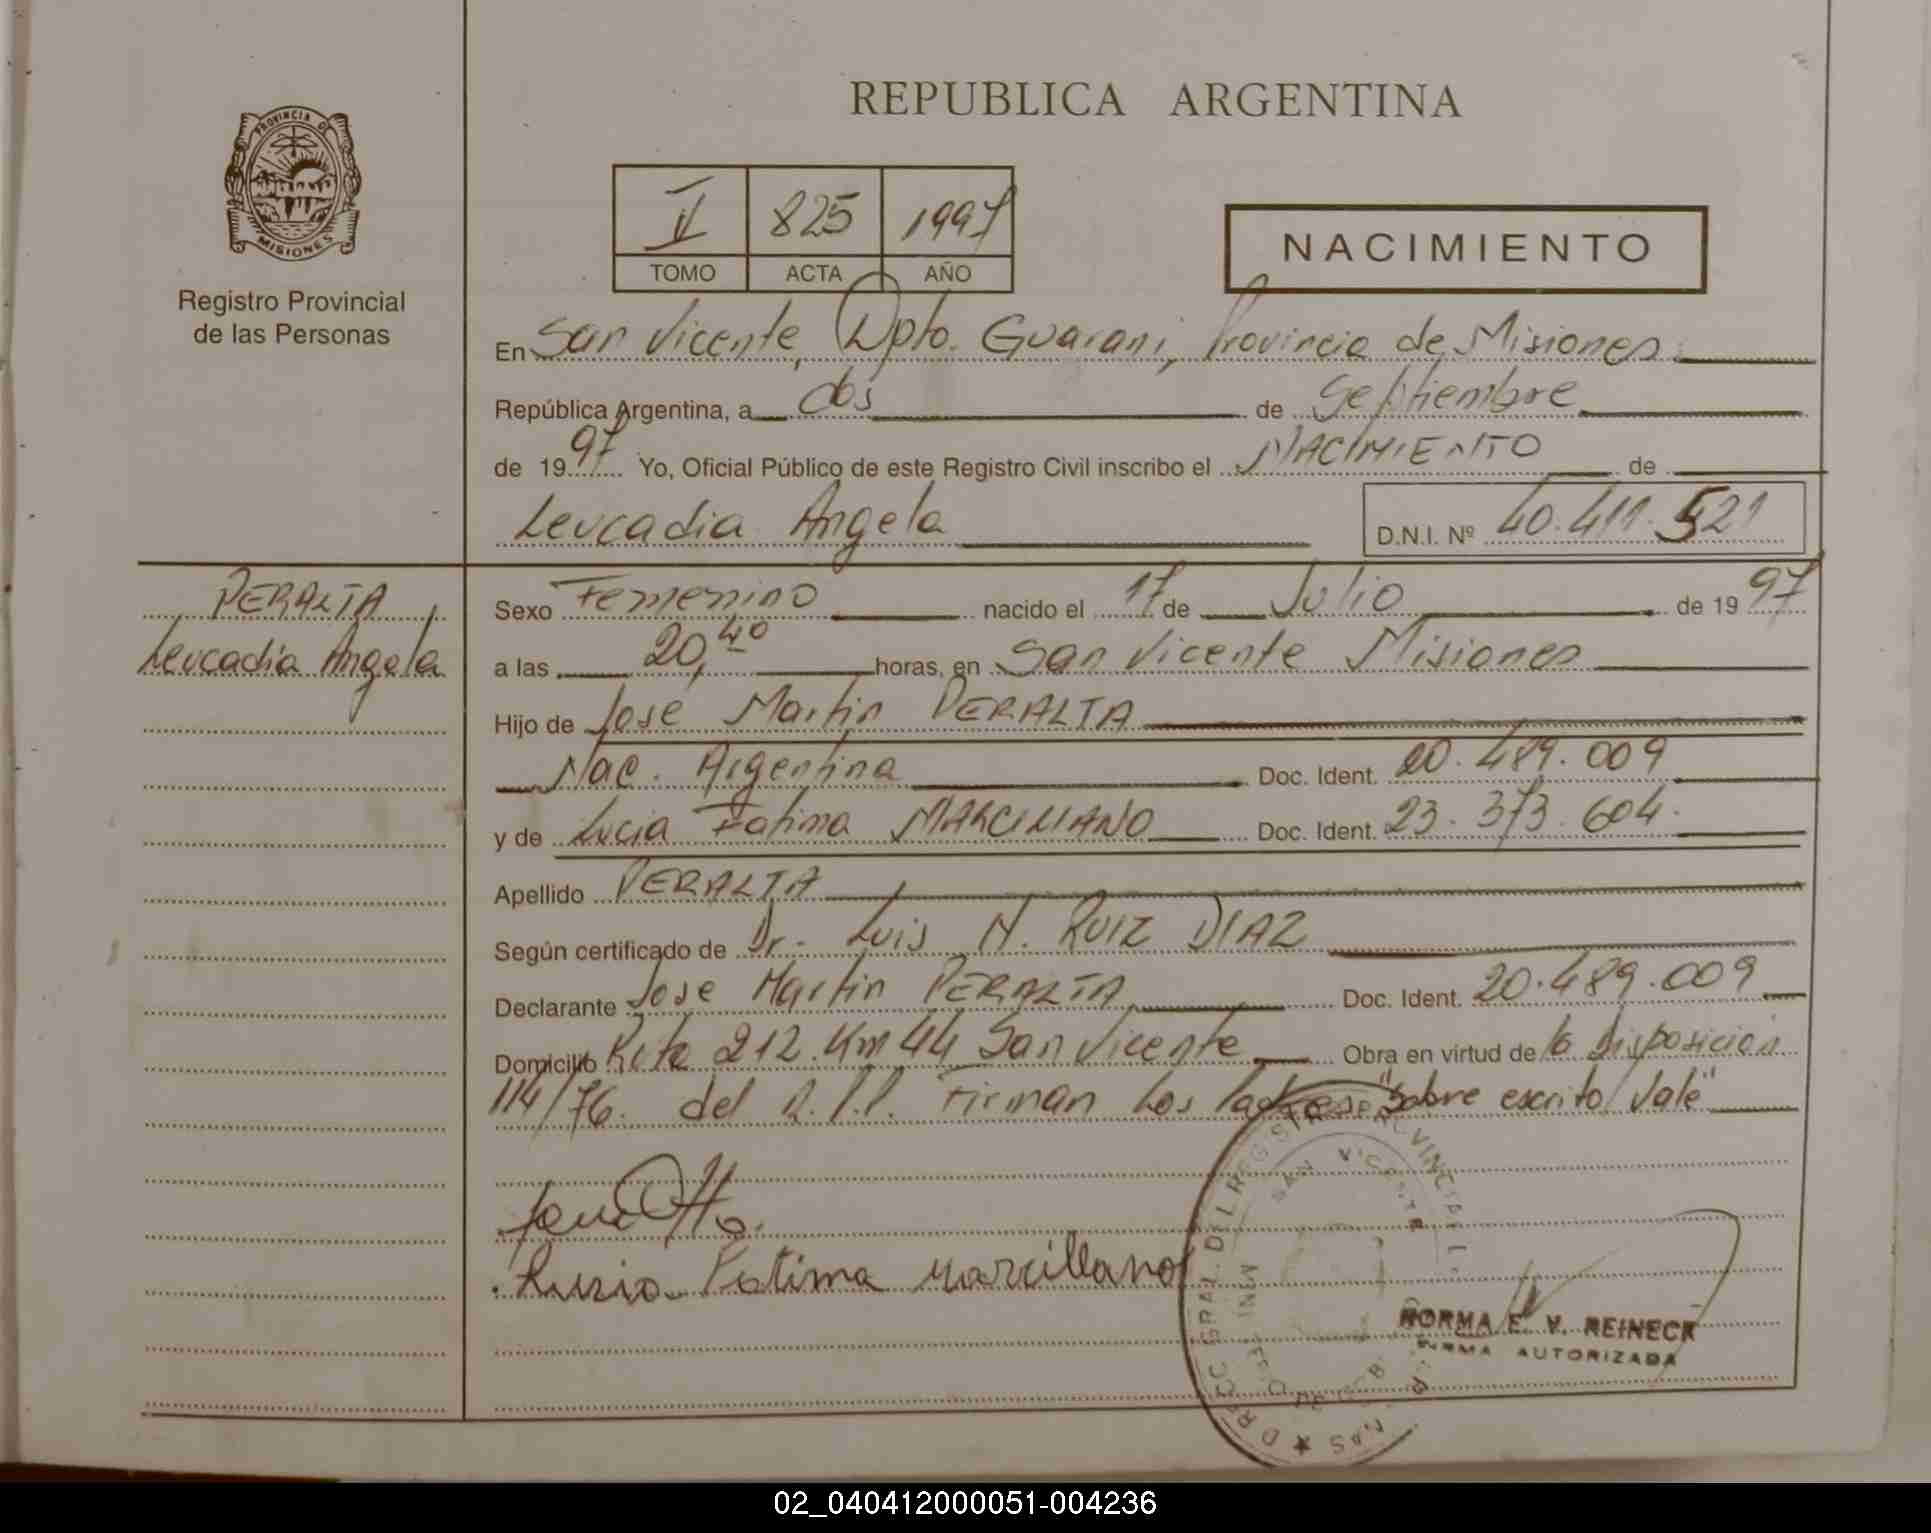 REPUBLICA ARGENTINA
PROVINCIA DE
MISIONES
Registro Provincial
de las Personas
II 825 1997
TOMO ACTA AÑO
NACIMIENTO
En San Vicente, Dpto. Guarani, Provincia de Misiones
República Argentina, a dos de Septiembre
de 1997 Yo, Oficial Público de este Registro Civil inscribo el NACIMIENTO de
Leucadia Angela D.N.I. Nº 40.411.521
PERALTA,
Leucadia Angela
Sexo Femenino nacido el 17 de Julio de 1997
a las 20,40 horas, en San Vicente Misiones
Hijo de Jose Martin PERALTA
Nac. Argentina Doc. Ident. 20.489.009
y de Lucia Fatima MARCILIANO Doc. Ident. 23.373.604.
Apellido PERALTA
Según certificado de Dr. Luis N. RUIZ DIAZ
Declarante Jose Martin PERALTA Doc. Ident. 20.489.009
Domicilio Ruta 212. Km 44 San Vicente Obra en virtud de la Disposición
114/76. del R.P.P. Firman Los Padres "Sobre escrito Vale"
Fatima
DIREC. GRAL. DEL REGISTRO PROVINCIAL
SAN VICENTE
NORMA E. V. REINECK
FIRMA AUTORIZADA
02_040412000051-004236